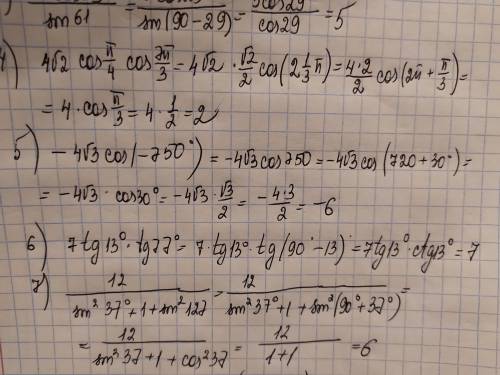 sin 61 = sin(90-29) = cos29 = 5
4) 4√2 cos π/4 cos 7π/3 = 4√2 · √2/2 cos(2 1/3 π) = 4·2/2 cos(2π + π/3) =
= 4 · cos π/3 = 4 · 1/2 = 2
5) -4√3 cos(-750°) = -4√3 cos750 = -4√3 cos(720+30°) =
= -4√3 · cos30° = -4√3 · √3/2 = -4·3/2 = -6
6) 7tg13° · tg77° = 7·tg13° · tg(90°-13) = 7tg13° · ctg13° = 7
7) 12/(sin² 37° + 1 + sin² 127) = 12/(sin² 37° + 1 + sin²(90° + 37°)) =
= 12/(sin² 37 + 1 + cos² 37) = 12/(1+1) = 6